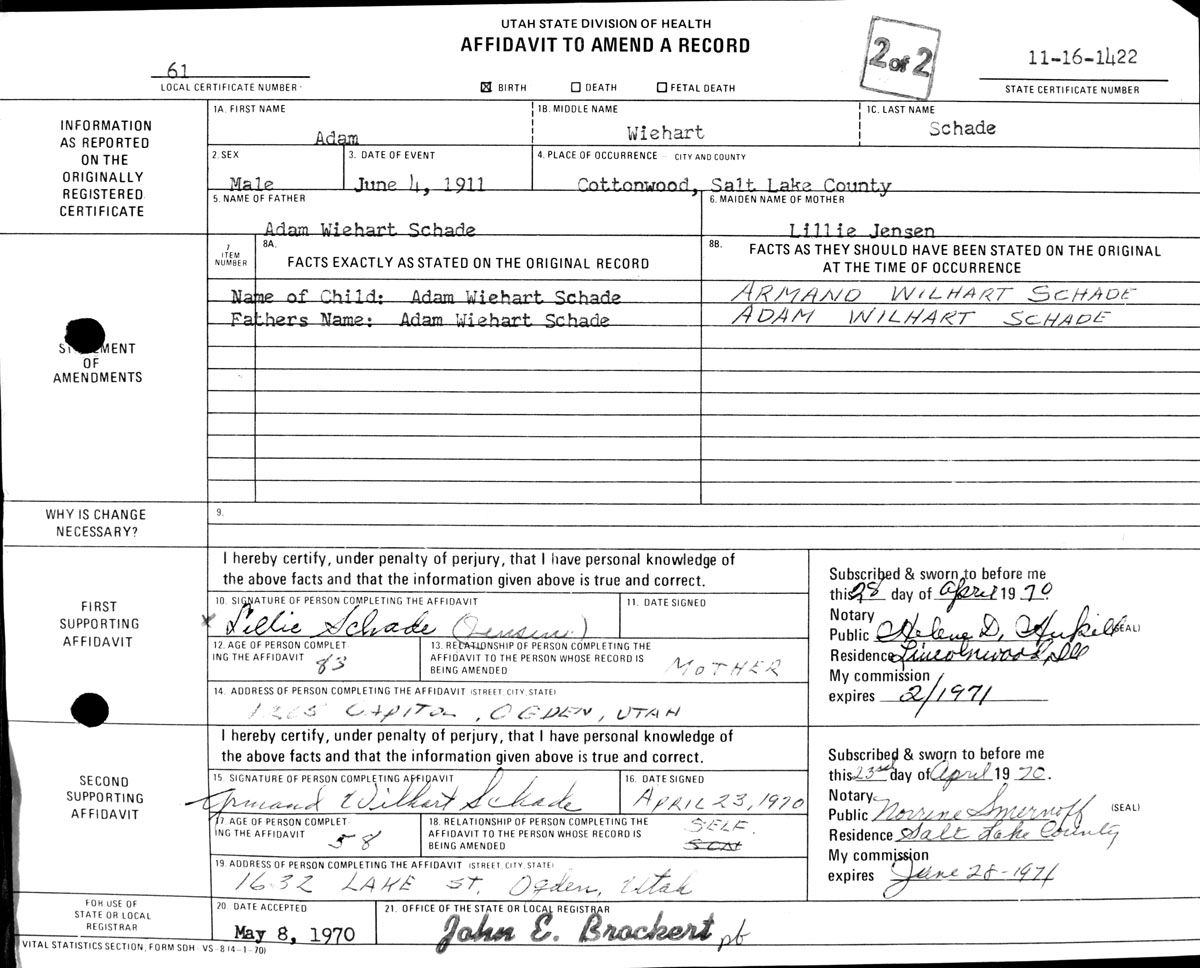 UTAH STATE DIVISION OF HEALTH
AFFIDAVIT TO AMEND A RECORD
2 of 2
11-16-1422
STATE CERTIFICATE NUMBER
61
LOCAL CERTIFICATE NUMBER
☒ BIRTH ☐ DEATH ☐ FETAL DEATH
INFORMATION
AS REPORTED
ON THE
ORIGINALLY
REGISTERED
CERTIFICATE
1A. FIRST NAME 1B. MIDDLE NAME 1C. LAST NAME
Adam Wiehart Schade
2. SEX 3. DATE OF EVENT 4. PLACE OF OCCURRENCE - CITY AND COUNTY
Male June 4, 1911 Cottonwood, Salt Lake County
5. NAME OF FATHER 6. MAIDEN NAME OF MOTHER
Adam Wiehart Schade Lillie Jensen
7
ITEM
NUMBER
8A.
FACTS EXACTLY AS STATED ON THE ORIGINAL RECORD
8B.
FACTS AS THEY SHOULD HAVE BEEN STATED ON THE ORIGINAL
AT THE TIME OF OCCURRENCE
Name of Child: Adam Wiehart Schade ARMAND WILHART SCHADE
Fathers Name: Adam Wiehart Schade ADAM WILHART SCHADE
OF
AMENDMENTS
WHY IS CHANGE
NECESSARY?
9.
FIRST
SUPPORTING
AFFIDAVIT
I hereby certify, under penalty of perjury, that I have personal knowledge of
the above facts and that the information given above is true and correct.
10. SIGNATURE OF PERSON COMPLETING THE AFFIDAVIT 11. DATE SIGNED
x Lillie Schade (Jensen)
12. AGE OF PERSON COMPLET
ING THE AFFIDAVIT 83
13. RELATIONSHIP OF PERSON COMPLETING THE
AFFIDAVIT TO THE PERSON WHOSE RECORD IS
BEING AMENDED MOTHER
14. ADDRESS OF PERSON COMPLETING THE AFFIDAVIT (STREET, CITY, STATE)
CAPITOL, OGDEN, UTAH
Subscribed & sworn to before me
this 28 day of April 19 70
Notary
Public Helene D. (SEAL)
Residence Lincolnwood, Ill
My commission
expires 2/1971
SECOND
SUPPORTING
AFFIDAVIT
I hereby certify, under penalty of perjury, that I have personal knowledge of
the above facts and that the information given above is true and correct.
15. SIGNATURE OF PERSON COMPLETING AFFIDAVIT 16. DATE SIGNED
Armand Wilhart Schade APRIL 23, 1970
17. AGE OF PERSON COMPLET
ING THE AFFIDAVIT 58
18. RELATIONSHIP OF PERSON COMPLETING THE
AFFIDAVIT TO THE PERSON WHOSE RECORD IS
BEING AMENDED
SELF
SON
19. ADDRESS OF PERSON COMPLETING THE AFFIDAVIT (STREET, CITY, STATE)
1632 LAKE ST. Ogden, Utah
Subscribed & sworn to before me
this 23rd day of April 19 70.
Notary
Public Norrine Smernoff (SEAL)
Residence Salt Lake County
My commission
expires June 28-1971
FOR USE OF
STATE OR LOCAL
REGISTRAR
20 DATE ACCEPTED 21. OFFICE OF THE STATE OR LOCAL REGISTRAR
May 8, 1970 John E. Brockert pb
VITAL STATISTICS SECTION, FORM SDH - VS-8 (4-1-70)